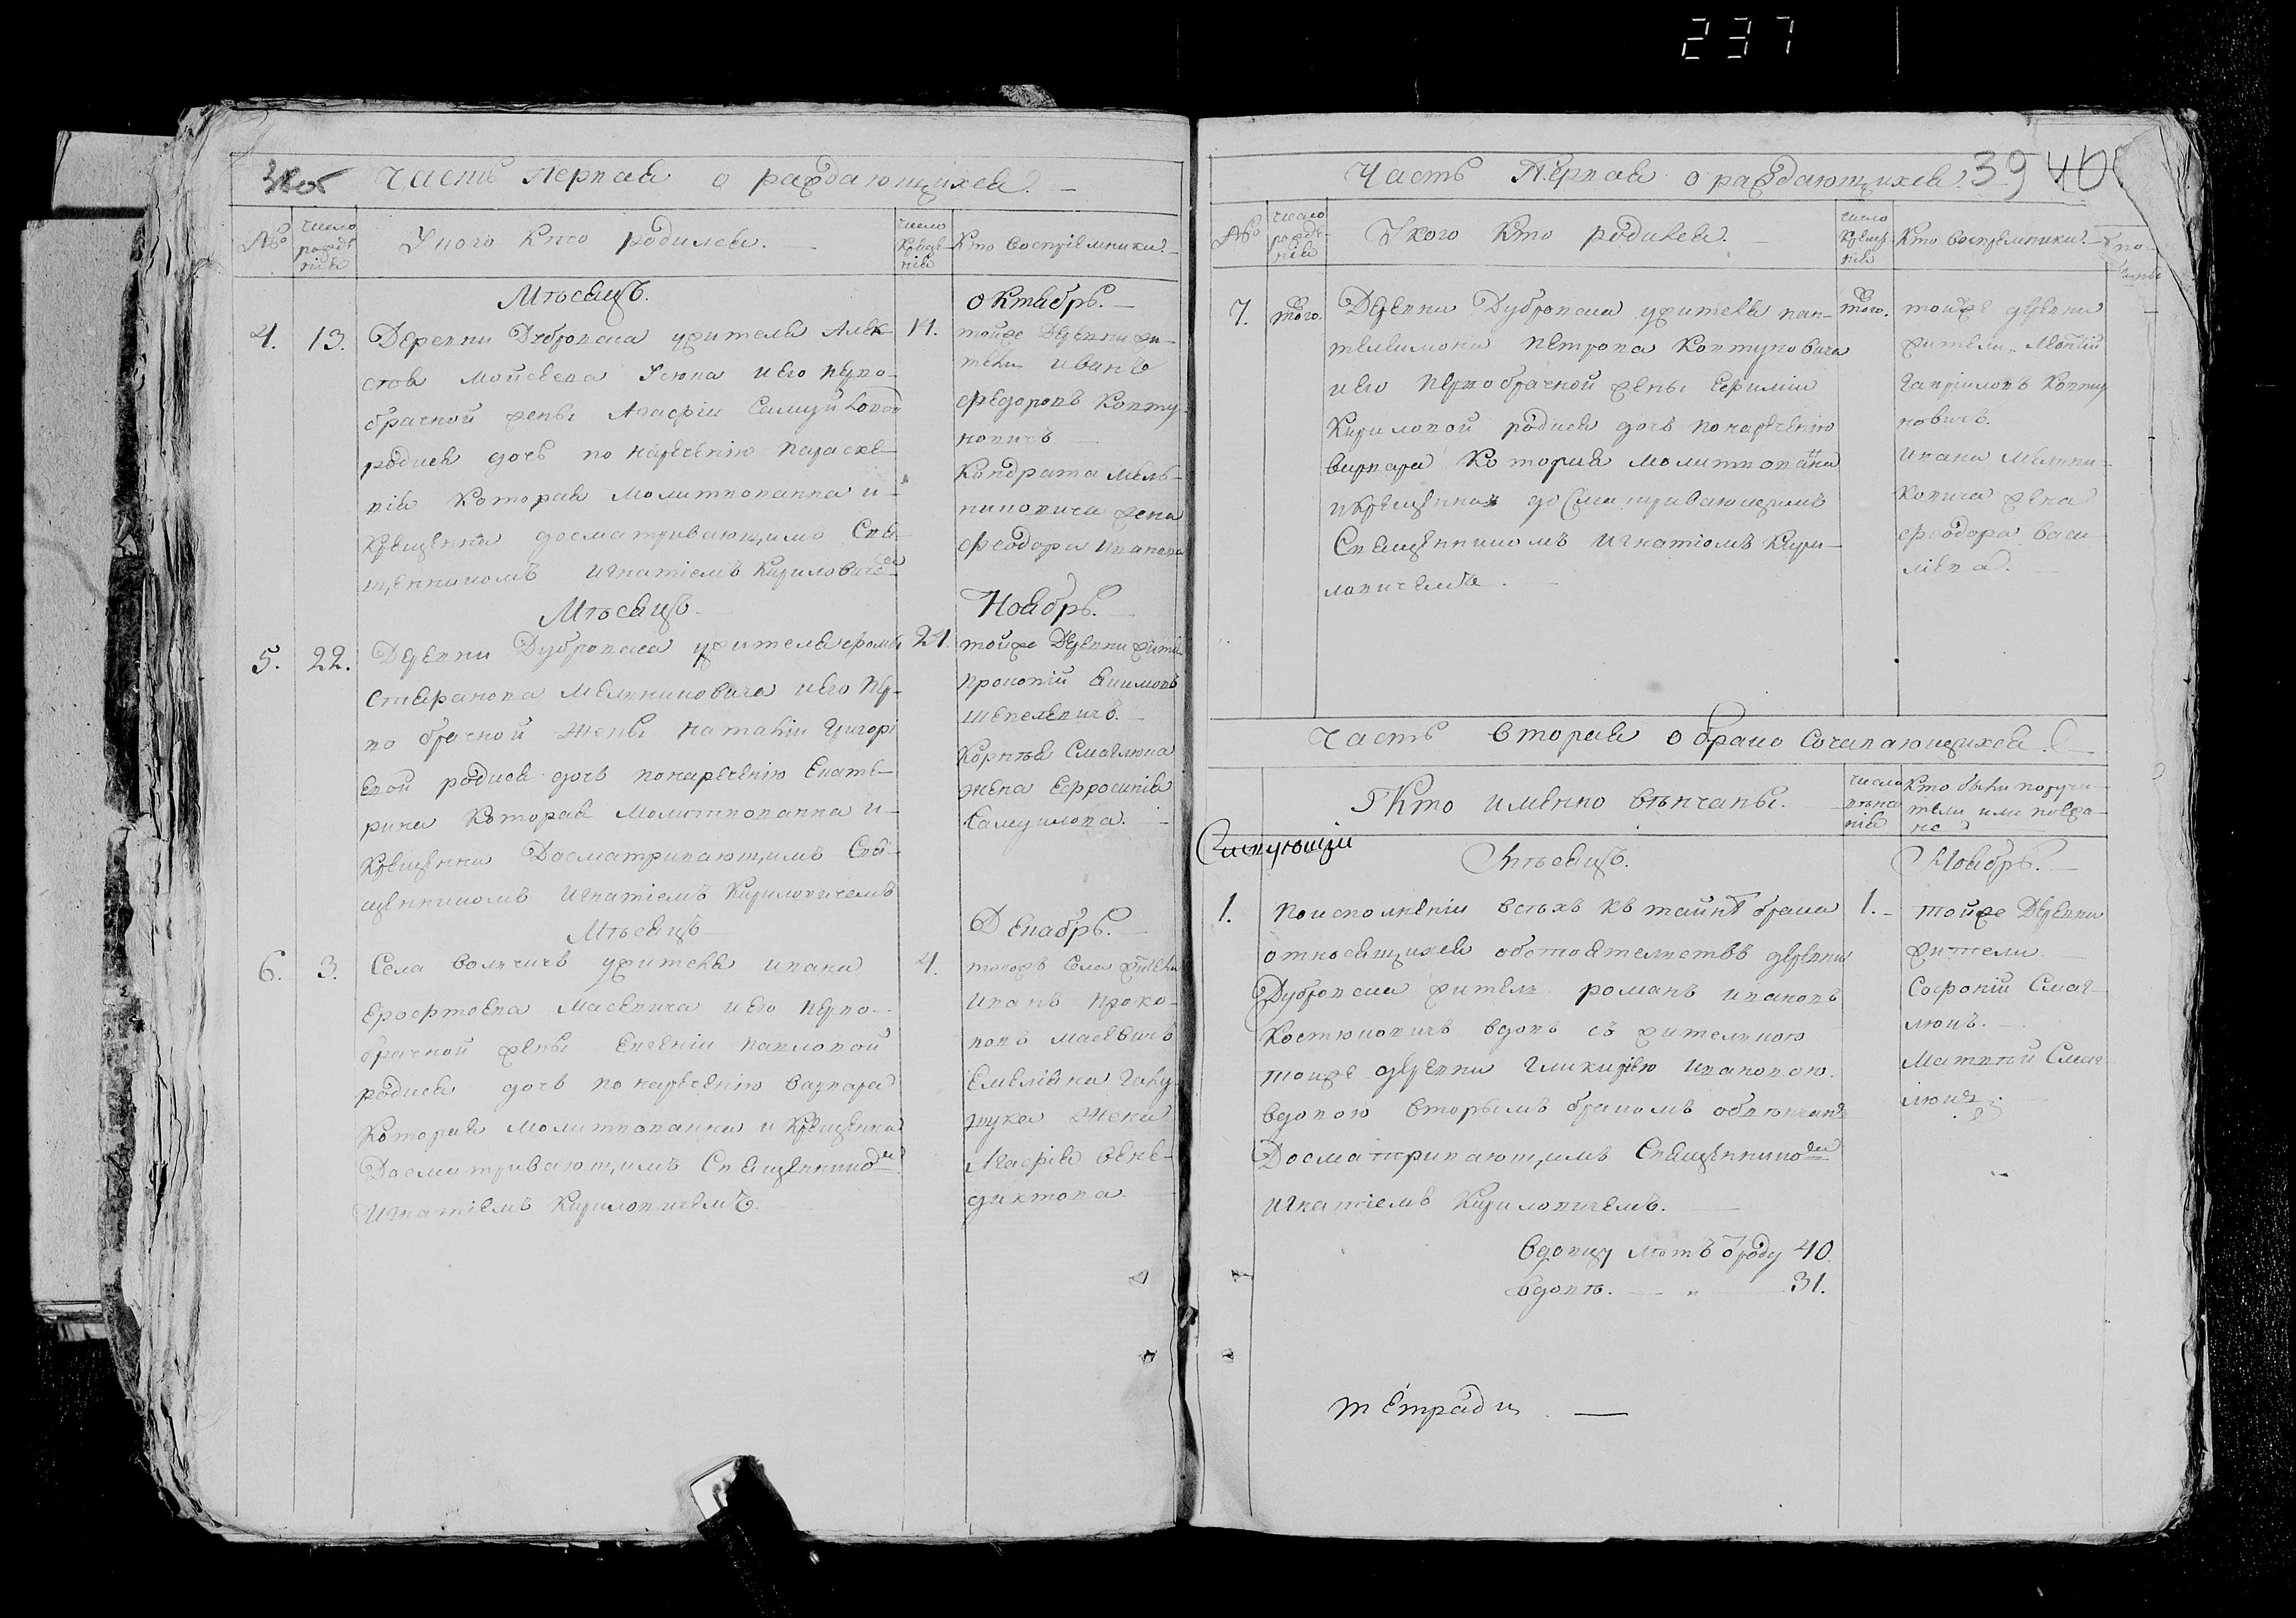 237
Часть Первая о раждающихся.
№
число рожденія
У кого кто родился.
число крещенія
Кто воспріемники.
Мѣсяцъ.
Октябрь.
4. 13.
Деревни Дубровска жителя Алек-
сѣя Мойсеева Усюка и его перво-
брачной жены Агафіи Самуйловой
родися дочь по нареченію Параске-
вія которая молитвованна и
крещенна досматривающимъ Свя-
щенникомъ Игнатіемъ Кириловиче
14.
тойже Деревни жи-
тели Иванъ
Федоровъ Ковту-
новичъ
Кондрата Мель-
никовича жена
Феодора Иванова
Мѣсяцъ
Ноябрь.
5. 22.
Деревни Дубровска жителя Фомы
Стефанова Мелникович его пер-
во брачной жены Наталіи Григорі
евой родися дочь по нареченію Екате-
рина которая молитвованна и
крещенна Досматривающимъ Свя-
щенникомъ Игнатіемъ Кириловичемъ
24.
тойже Деревни жите
Прокопій Акимовъ
Шепелевичъ.
Корнѣя Смаглюка
жена Ефросинія
Самуилова.
Мѣсяцъ
Декабрь.
6. 3.
Села Волчичъ жителя Ивана
Ерофтеева Масевича и его перво-
брачной жены Евгеніи Павловой
родися дочь по нареченію Варвара
которая молитвованна и крещенна
Досматривающимъ Священнико
Игнатіемъ Кириловичемъ.
4.
тогожъ Села жителі
Иванъ Проко-
повъ Масевичъ
Емеліяна
жена
Агафія Вене-
диктова.
Часть Первая о раждающихся. 39 40
№
число рожденія
У кого кто родился.
число крещенія
Кто воспріемники.
7. того.
Деревни Дубровска жителя Пан-
телеимона Петрова Ковтуновича
и его первобрачной жены Ефиміи
Кириловой родися дочь по нареченію
Варвара которая молитвованна
и крещенна досматривающимъ
Священникомъ Игнатіемъ Кири-
ловичемъ.
того.
тойже деревни
жители
Гавріиловъ Ковту
новичъ.
Ивана Мелни-
ковича жена
Феодора Васи-
ліева.
Часть вторая о брако сочетающихся.
Кто именно вѣнчаны.
числа вѣнчанія
Кто были поручи-
тели или поѣзжа-
не
Мѣсяцъ.
Ноябрь.
1.
По исполненіи всѣхъ къ тайнѣ брака
относящихся обстоятелствъ деревни
Дубровска житель Романъ Ивановъ
Костюковичъ вдовъ съ жителкою
тоижъ деревни Гликиріею Ивановою
вдовою вторымъ бракомъ обвѣнчанъ
Досматривающимъ Священнико
Игнатіемъ Кириловичемъ.
1.
тойже Деревни
жители
Софоній Смаг-
люкъ.
Матвѣй Смаг-
люкъ.
Вдовцу лѣтъ ѿ роду 40.
Вдовѣ. " 31.
тетради